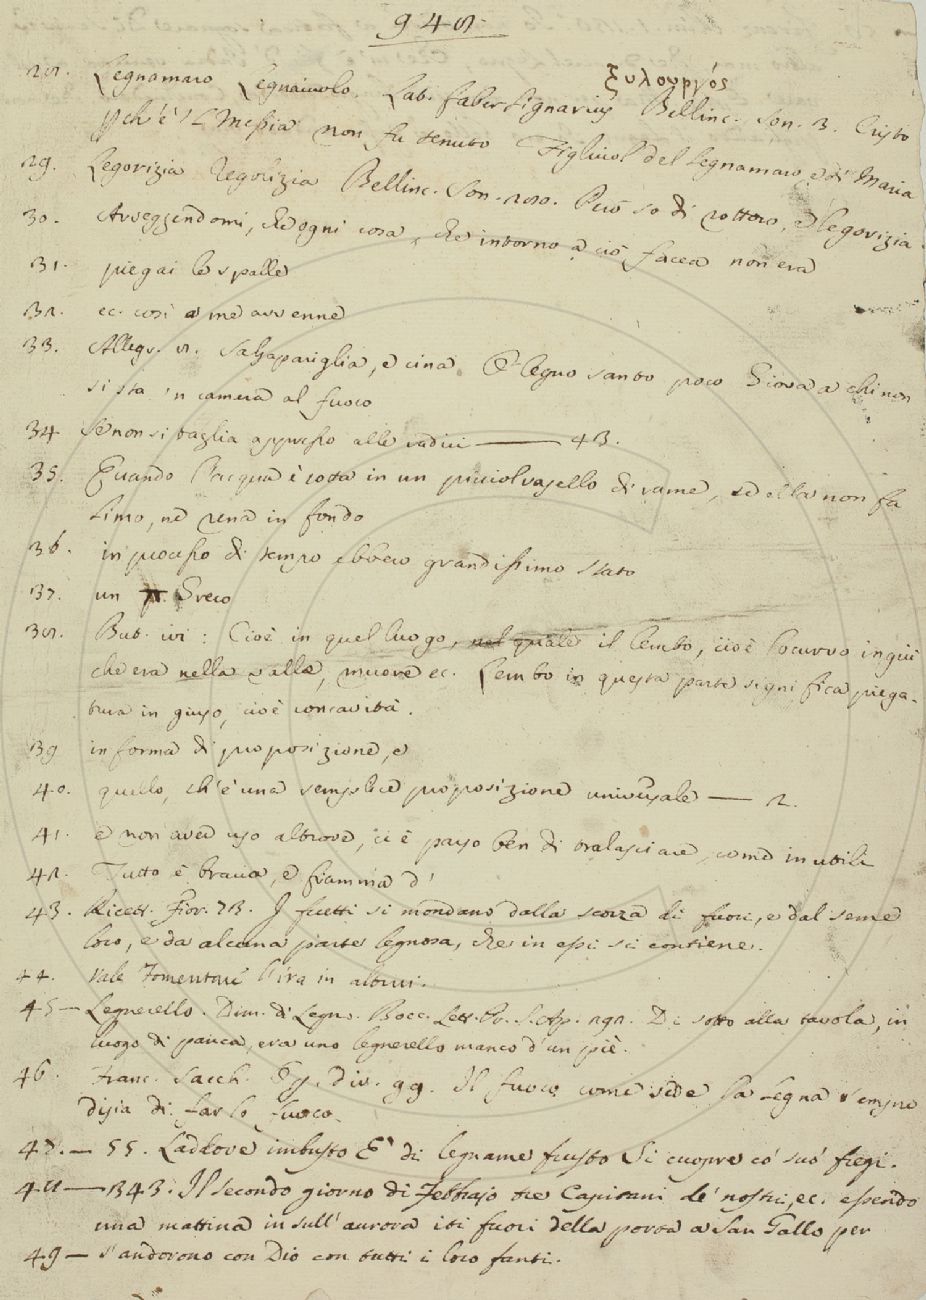 948.
28. Legnamaro Legnaiuolo. Lat. faber lignarius ξυλουργός Bellinc. Son. 3. Cristo
Perch'è 'l Messia non fu tenuto Figliuol del legnamaro, e di Maria
29. Legorizia Regolizia Bellinc. Son. 200. Però so di e legorizia
30. Avveggendomi, che ogni cosa, che intorno a ciò facea non era
31. piegai le spalle
32. ec. così a me avvenne
33. Alleg. 8. Salsapariglia, e cina E legno santo poco Giova a chi non
si sta 'n camera al fuoco
34 Se non si taglia appresso alle radici —— 43.
35. Quando l'acqua è cotta in un picciol vasello di rame, se ella non fa
limo, nè rena in fondo
36. in processo di tempo ebbero grandissimo stato
37. un Greco
38. But. ivi: Cioè in quel luogo, nel quale il lembo, cioè lo curvo in giù
che era nella valle, muore ec. Lembo in questa parte significa piega-
tura in giuso, cioè concavità.
39 in forma di proposizione, e
40. quello, ch'è una semplice proposizione universale — 2.
41. e non aver uso altrove, ci è parso ben di tralasciare, come inutili
42. Tutto è bracia, e fiamma d'
43. Ricett. Fior. 73. I frutti si mondano dalla scorza di fuori, e dal seme
loro, e da alcuna parte legnosa, che in essi si contiene.
44. vale Fomentare l'ira in altrui.
45 — Legnerello. Dim. di Legno. Bocc. Lett. Pr. S. Ap. 292. Di sotto alla tavola, in
luogo di panca, era uno legnerello manco d'un piè.
46. Franc. Sacch. Op. div. 99. Il fuoco come vede la legna sempre
disia di far lo fuoco.
47. — 55. Laddove imbusto E' di legname frusto Si cuopre co' suo' fregi.
48 — 343. Il secondo giorno di Febbrajo tre Capitani de' nostri, ec. essendo
una mattina in sull'aurora iti fuori della porta a San Gallo per
49 — s'andorono con Dio con tutti i loro fanti.